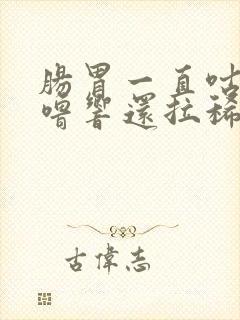 腸胃一直咕
嚕響還拉稀
古偉志